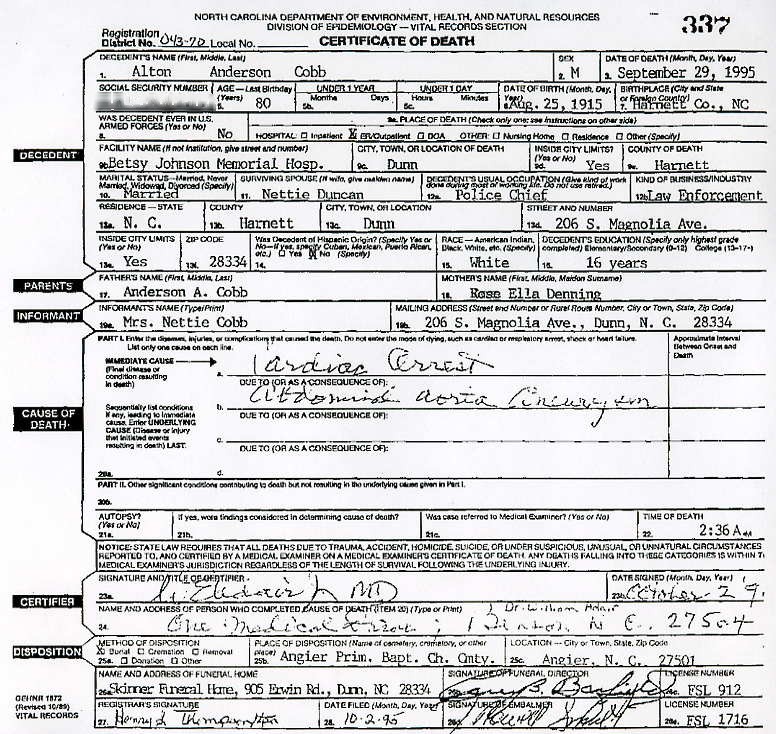 NORTH CAROLINA DEPARTMENT OF ENVIRONMENT, HEALTH, AND NATURAL RESOURCES
DIVISION OF EPIDEMIOLOGY — VITAL RECORDS SECTION
337
Registration District No. 043-70 Local No.
CERTIFICATE OF DEATH
DECEDENT'S NAME (First, Middle, Last) SEX DATE OF DEATH (Month, Day, Year)
1. Alton Anderson Cobb 2. M 3. September 29, 1995
SOCIAL SECURITY NUMBER AGE—Last Birthday (Years) UNDER 1 YEAR UNDER 1 DAY DATE OF BIRTH (Month, Day, Year) BIRTHPLACE (City and State or Foreign Country)
5a. 80 5b. Months Days 5c. Hours Minutes 6. Aug. 25, 1915 7. Harnett Co., NC
WAS DECEDENT EVER IN U.S. ARMED FORCES? (Yes or No) 9a. PLACE OF DEATH (Check only one; see instructions on other side)
8. No HOSPITAL: Inpatient X ER/Outpatient DOA OTHER: Nursing Home Residence Other (Specify)
DECEDENT
FACILITY NAME (If not institution, give street and number) CITY, TOWN, OR LOCATION OF DEATH INSIDE CITY LIMITS? (Yes or No) COUNTY OF DEATH
9b. Betsy Johnson Memorial Hosp. 9c. Dunn 9d. Yes 9e. Harnett
MARITAL STATUS—Married, Never Married, Widowed, Divorced (Specify) SURVIVING SPOUSE (If wife, give maiden name) DECEDENT'S USUAL OCCUPATION (Give kind of work done during most of working life. Do not use retired.) KIND OF BUSINESS/INDUSTRY
10. Married 11. Nettie Duncan 12a. Police Chief 12b. Law Enforcement
RESIDENCE - STATE COUNTY CITY, TOWN, OR LOCATION STREET AND NUMBER
13a. N. C. 13b. Harnett 13c. Dunn 13d. 206 S. Magnolia Ave.
INSIDE CITY LIMITS (Yes or No) ZIP CODE Was Decedent of Hispanic Origin? (Specify Yes or No—If yes, specify Cuban, Mexican, Puerto Rican, etc.) Yes X No (Specify) RACE - American Indian, Black, White, etc. (Specify) DECEDENT'S EDUCATION (Specify only highest grade completed) Elementary/Secondary (0-12) College (13-17+)
13e. Yes 13f. 28334 14. 15. White 16. 16 years
PARENTS
FATHER'S NAME (First, Middle, Last) MOTHER'S NAME (First, Middle, Maiden Surname)
17. Anderson A. Cobb 18. Rose Ella Denning
INFORMANT
INFORMANT'S NAME (Type/Print) MAILING ADDRESS (Street and Number or Rural Route Number, City or Town, State, Zip Code)
19a. Mrs. Nettie Cobb 19b. 206 S. Magnolia Ave., Dunn, N. C. 28334
PART I. Enter the diseases, injuries, or complications that caused the death. Do not enter the mode of dying, such as cardiac or respiratory arrest, shock or heart failure. List only one cause on each line. Approximate Interval Between Onset and Death
IMMEDIATE CAUSE (Final disease or condition resulting in death)
a. Cardiac Arrest
DUE TO (OR AS A CONSEQUENCE OF):
b. Abdominal Aorta Aneurysm
DUE TO (OR AS A CONSEQUENCE OF):
CAUSE OF DEATH
Sequentially list conditions if any, leading to immediate cause. Enter UNDERLYING CAUSE (Disease or injury that initiated events resulting in death) LAST.
c.
DUE TO (OR AS A CONSEQUENCE OF):
20a. d.
PART II. Other significant conditions contributing to death but not resulting in the underlying cause given in Part I.
20b.
AUTOPSY? (Yes or No) If yes, were findings considered in determining cause of death? Was case referred to Medical Examiner? (Yes or No) TIME OF DEATH
21a. 21b. 21c. 22. 2:36 A M
NOTICE: STATE LAW REQUIRES THAT ALL DEATHS DUE TO TRAUMA, ACCIDENT, HOMICIDE, SUICIDE, OR UNDER SUSPICIOUS, UNUSUAL, OR UNNATURAL CIRCUMSTANCES
REPORTED TO, AND CERTIFIED BY A MEDICAL EXAMINER ON A MEDICAL EXAMINER'S CERTIFICATE OF DEATH. ANY DEATHS FALLING INTO THESE CATEGORIES IS WITHIN T
MEDICAL EXAMINER'S JURISDICTION REGARDLESS OF THE LENGTH OF SURVIVAL FOLLOWING THE UNDERLYING INJURY.
CERTIFIER
SIGNATURE AND TITLE OF CERTIFIER DATE SIGNED (Month, Day, Year)
23a. MD 23b. October 2 9
NAME AND ADDRESS OF PERSON WHO COMPLETED CAUSE OF DEATH (ITEM 20) (Type or Print)
24. One Medical Benson N C. 27504
DISPOSITION
METHOD OF DISPOSITION PLACE OF DISPOSITION (Name of cemetery, crematory, or other place) LOCATION — City or Town, State, Zip Code
X Burial Cremation Removal
25a. Donation Other 25b. Angier Prim. Bapt. Ch. Cmty. 25c. Angier, N. C. 27501
NAME AND ADDRESS OF FUNERAL HOME SIGNATURE OF FUNERAL DIRECTOR LICENSE NUMBER
26a. Skinner Funeral Home, 905 Erwin Rd., Dunn, NC 28334 26b. 26c. FSL 912
DEHNR 1872 (Revised 10/89) VITAL RECORDS
REGISTRAR'S SIGNATURE DATE FILED (Month, Day, Year) SIGNATURE OF EMBALMER LICENSE NUMBER
27. 28. 10-2-95 26d. 26e. FSL 1716